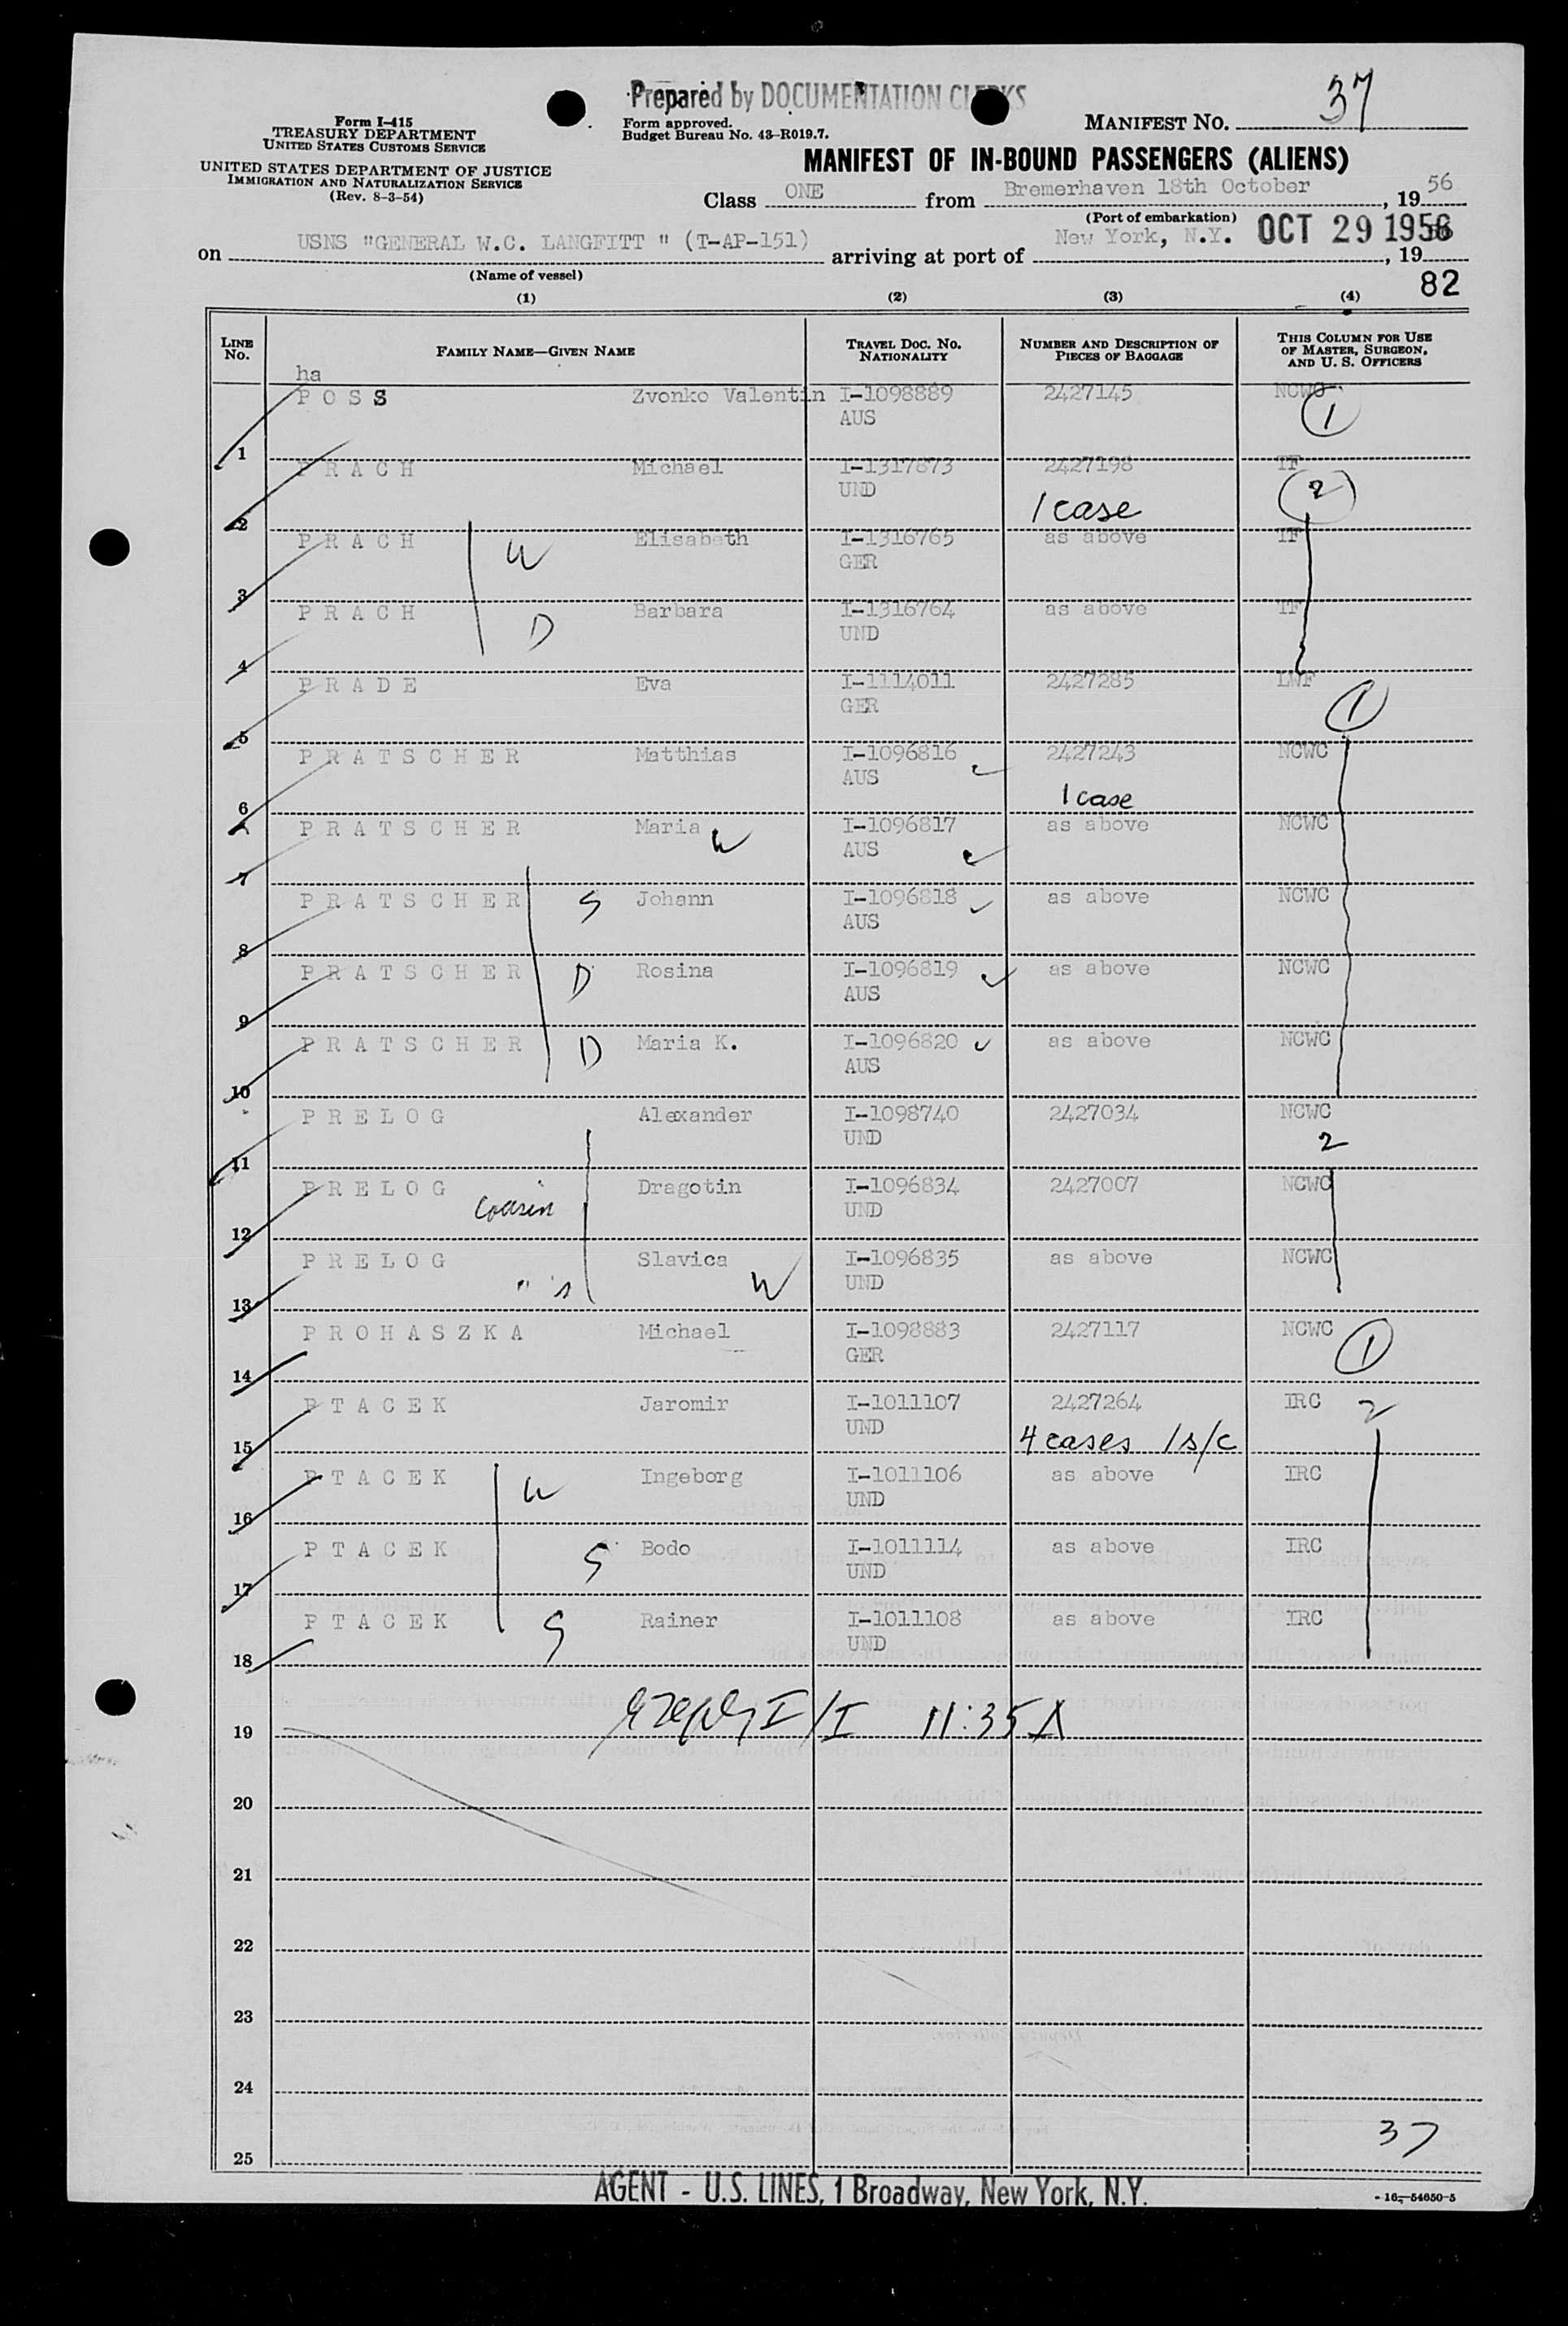 Prepared by DOCUMENTATION CLERKS
37
Form I-415
TREASURY DEPARTMENT
UNITED STATES CUSTOMS SERVICE
UNITED STATES DEPARTMENT OF JUSTICE
IMMIGRATION AND NATURALIZATION SERVICE
(Rev. 8-3-54)
Form approved.
Budget Bureau No. 43-R019.7.
MANIFEST NO.
MANIFEST OF IN-BOUND PASSENGERS (ALIENS)
Class ONE from Bremerhaven 18th October, 19 56
(Port of embarkation)
on USNS "GENERAL W.C. LANGFITT " (T-AP-151) arriving at port of New York, N.Y. OCT 29 1956, 19
(Name of vessel)
82
(1) (2) (3) (4)
LINE No. FAMILY NAME—GIVEN NAME TRAVEL DOC. NO. NATIONALITY NUMBER AND DESCRIPTION OF PIECES OF BAGGAGE THIS COLUMN FOR USE OF MASTER, SURGEON, AND U. S. OFFICERS
ha
POSS Zvonko Valentin I-1098889 2427145 NCWC
1 AUS 1
PRACH Michael I-1317873 2427198 TF
2 UND 1 case 2
PRACH W Elisabeth I-1316765 as above TF
3 GER
PRACH D Barbara I-1316764 as above TF
4 UND
PRADE Eva I-1114011 2427285 LWF
5 GER 1
PRATSCHER Matthias I-1096816 2427243 NCWC
6 AUS 1 case
PRATSCHER Maria W I-1096817 as above NCWC
7 AUS
PRATSCHER S Johann I-1096818 as above NCWC
8 AUS
PRATSCHER D Rosina I-1096819 as above NCWC
9 AUS
PRATSCHER D Maria K. I-1096820 as above NCWC
10 AUS
PRELOG Alexander I-1098740 2427034 NCWC
11 UND 2
PRELOG Cousin Dragotin I-1096834 2427007 NCWC
12 UND
PRELOG Slavica W I-1096835 as above NCWC
13 " 's UND
PROHASZKA Michael I-1098883 2427117 NCWC
14 GER 1
PTACEK Jaromir I-1011107 2427264 IRC 2
15 UND 4 cases 1 s/c
PTACEK W Ingeborg I-1011106 as above IRC
16 UND
PTACEK S Bodo I-1011114 as above IRC
17 UND
PTACEK S Rainer I-1011108 as above IRC
18 UND
19 I/I 11:35 A
20
21
22
23
24
25 37
AGENT - U.S. LINES, 1 Broadway, New York, N.Y.
16-54650-5